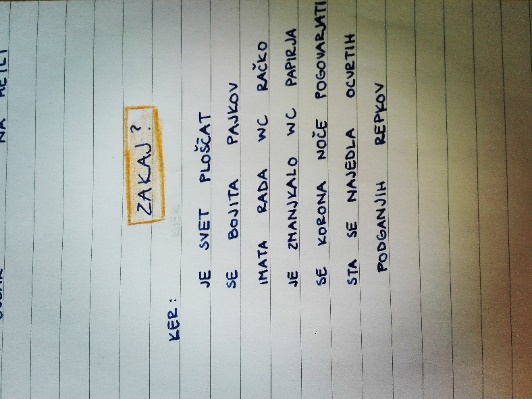 ZAKAJ?
KER:
JE SVET PLOŠČAT
SE BOJITA PAJKOV
IMATA RADA WC RAČKO
JE ZMANJKALO WC PAPIRJA
SE KORONA NOČE POGOVARJATI
STA SE NAJEDLA OCVRTIH
PODGANJIH REPKOV